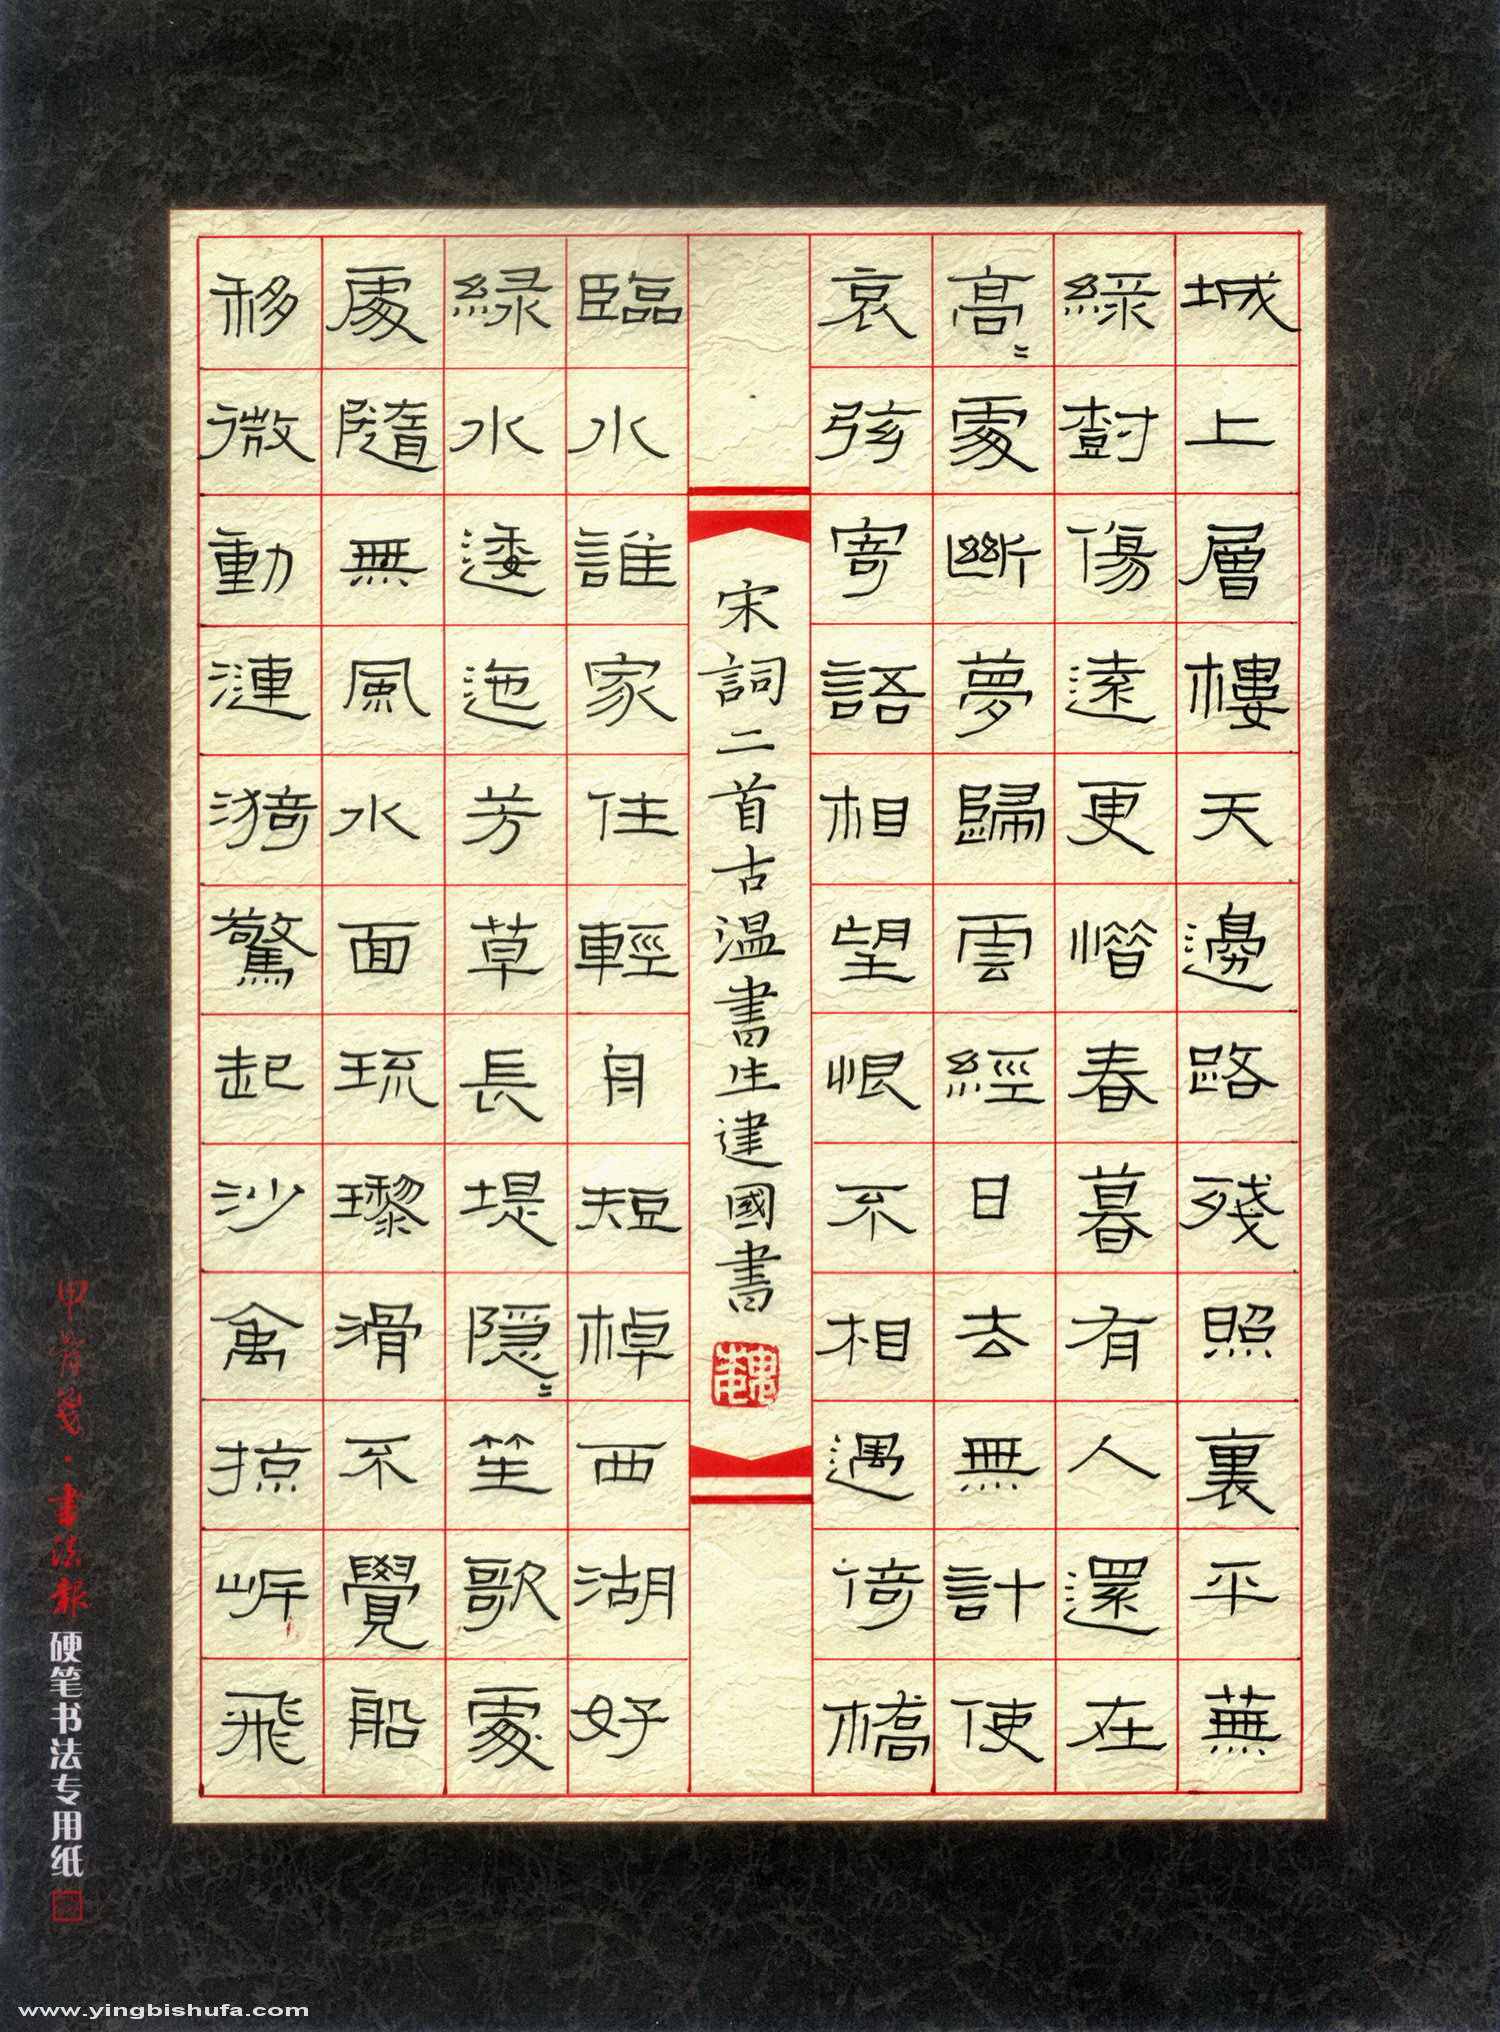 城上層樓天邊路殘照裏平蕪
綠樹傷遠更惜春暮有人還在
高〻處斷夢歸雲經日去無計使
哀弦寄語相望恨不相遇倚橋
宋詞二首古温書生建國書
臨水誰家住輕舟短棹西湖好
緑水逶迤芳草長堤隱〻笙歌處
處隨無風水面琉璃滑不覺船
移微動漣漪驚起沙禽掠岸飛
甲骨箋·書法報硬笔书法专用纸
www.yingbishufa.com